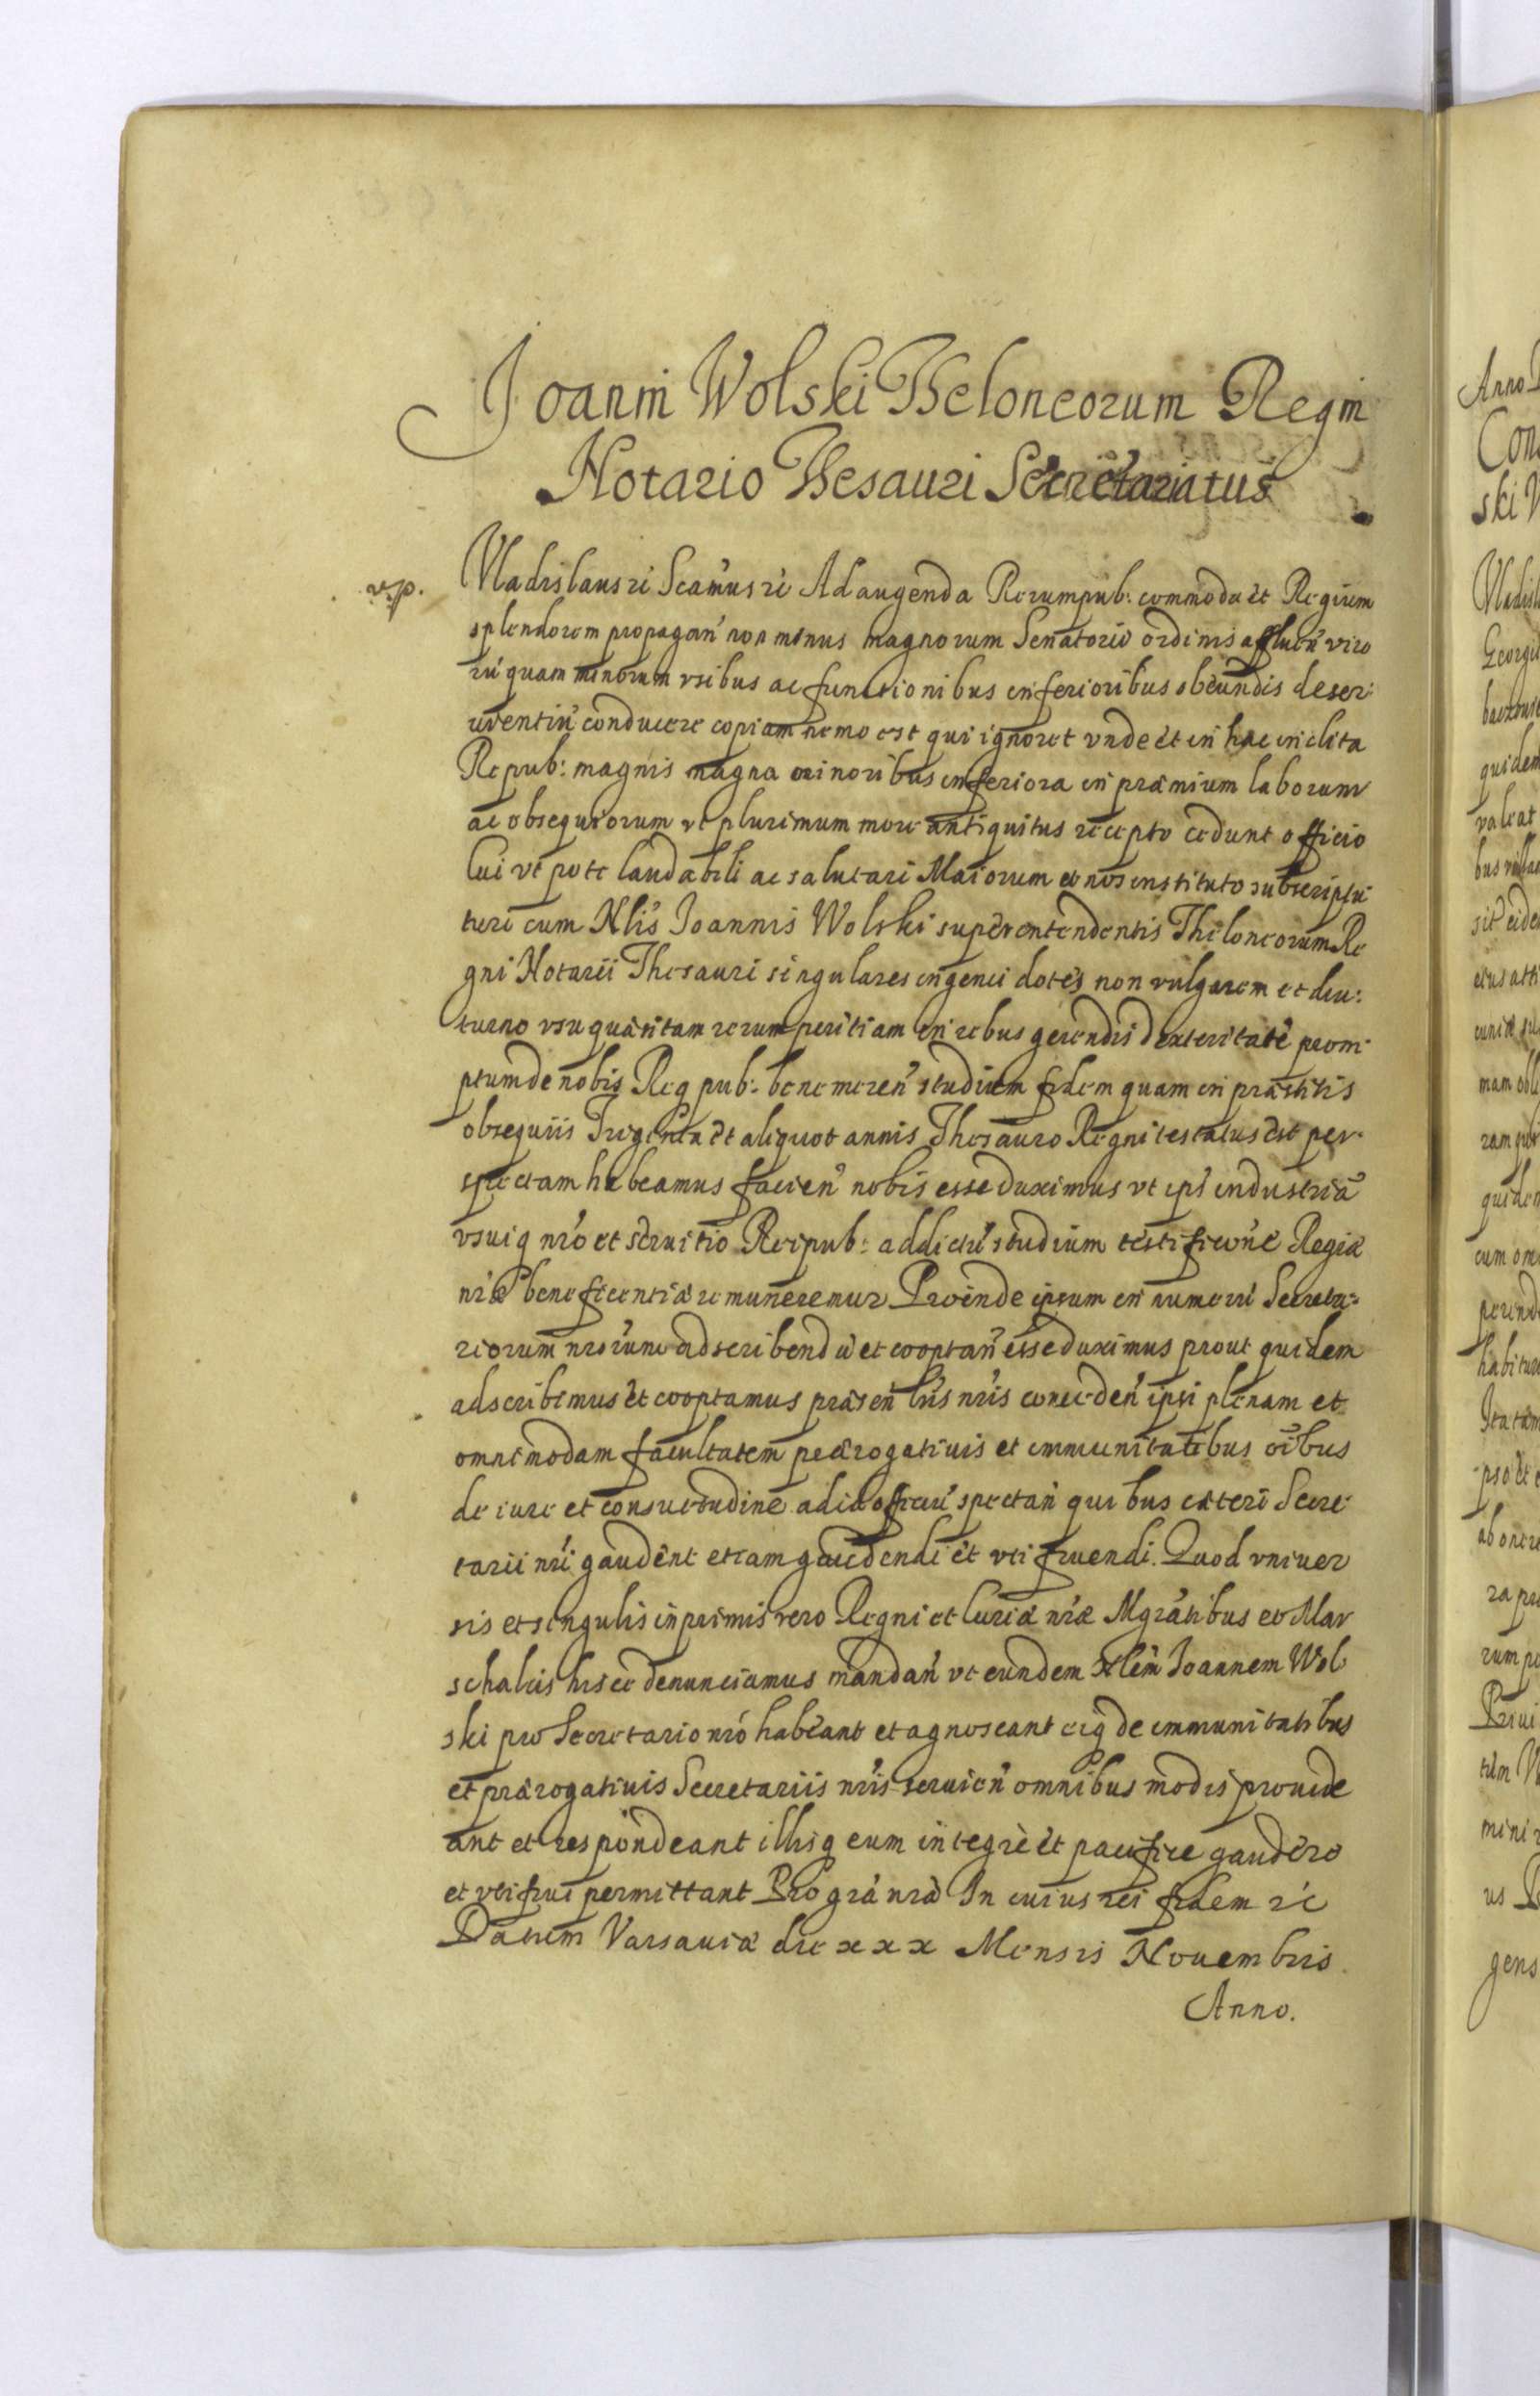 Joanni Wolski Theloneorum Regni
Notario Thesauri Secretariatus
v.p.
Vladislaus rc Scamus rc Ad augenda Rerumpub: commoda et Regium
splendorem propagan non minus magnorum Senatorio ordinis affluen viro
ru quam minorum vsibus ac functionibus inferioribus obeundis deser:
uientiu conducere copiam nemo est qui ignoret vnde et in hac inclita
Repub: magnis magna minoribus inferiora in præmium laborum
ac obsequiorum vt plurimum more antiquitus recepto cedunt officio
Cui vt pote laudabili ac salutari Maiorum et nos instituto
turi cum Nlis Joannis Wolski superentendentis Theloneorum Re
gni Notarii Thesauri singulares ingenii dotes non vulgarem et diu:
turno vsu quæsitam rerum peritiam in rebus gerendis dexteritate prom:
ptum de nobis Req pub: bene meren studium fidem quam in præstitis
obsequiis Triginta et aliquot annis Thesauro Regni testatus est per:
spectam habeamus facien nobis esse duximus vt ips industria
vsuiq nro et seruitio Reipub: addictu studium testificone Regiæ
nræ beneficentiæ remuneremur Proinde ipsum in numeru Secreta:
riorum nrorum adscribendu et cooptan esse duximus prout quidem
adscribimus et cooptamus præsen lris nris conceden ipsi plenam et
omnimodam facultatem prærogatiuis et immunitatibus oibus
de iure et consuetudine ad id officiu spectan quibus cæteri Secre
tarii nri gaudent etiam gaudendi et vti fruendi. Quod vniuer
sis et singulis inprimis vero Regni et Curiæ nræ Mgratibus et Mar
schalcis hisce denunciamus mandan vt eundem Nlem Joannem Wol
ski pro Secretario nro habeant et agnoscant eiq de immunitatibus
et prærogatiuis Secretariis nris seruien omnibus modis prouide
ant et respondeant illisq eum integre et pacifice gaudere
et vti frui permittant Pro gra nra In cuius rei fidem rc
Datum Varsauiæ die xxx Mensis Nouembris.
Anno.